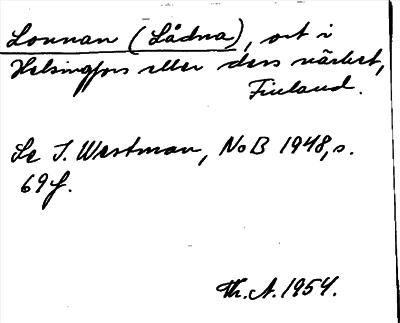 Lonnan (Lådna), ort i
Helsingfors eller dess närhet,
Finland.
Se I. Westman, NoB 1948, s.
69 f.
Th. A. 1954.